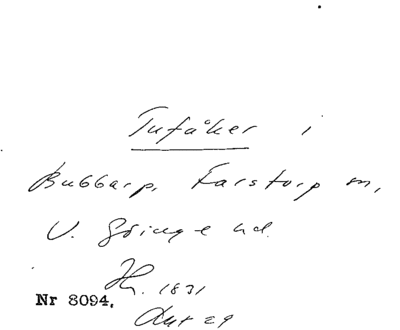 Tufåker i
Bubbarp, Farstorp sn,
V. Göinge hd.
Hr. 1831
Nr 8094.
Akt 29